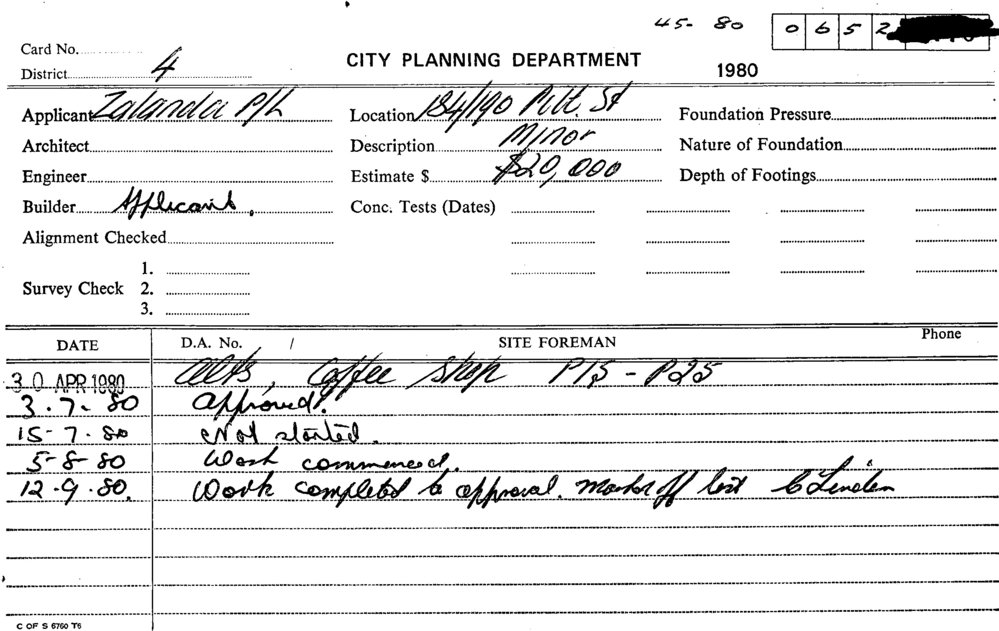 45- 80 0652
Card No.
District 4
CITY PLANNING DEPARTMENT
1980
Applicant Zalanda P/L Location 184/190 Pitt. St Foundation Pressure
Architect Description Minor Nature of Foundation
Engineer Estimate $ $20,000 Depth of Footings
Builder Applicant. Conc. Tests (Dates)
Alignment Checked
1.
Survey Check 2.
3.
DATE D.A. No. / SITE FOREMAN Phone
30 APR 1980 Alts, Coffee Shop P15 - P25
3.7.80 Approved.
15-7.80 Not started.
5-8-80 Work commenced.
12.9.80. Work completed to approval. Mark off list C Linden
C OF S 6760 T6